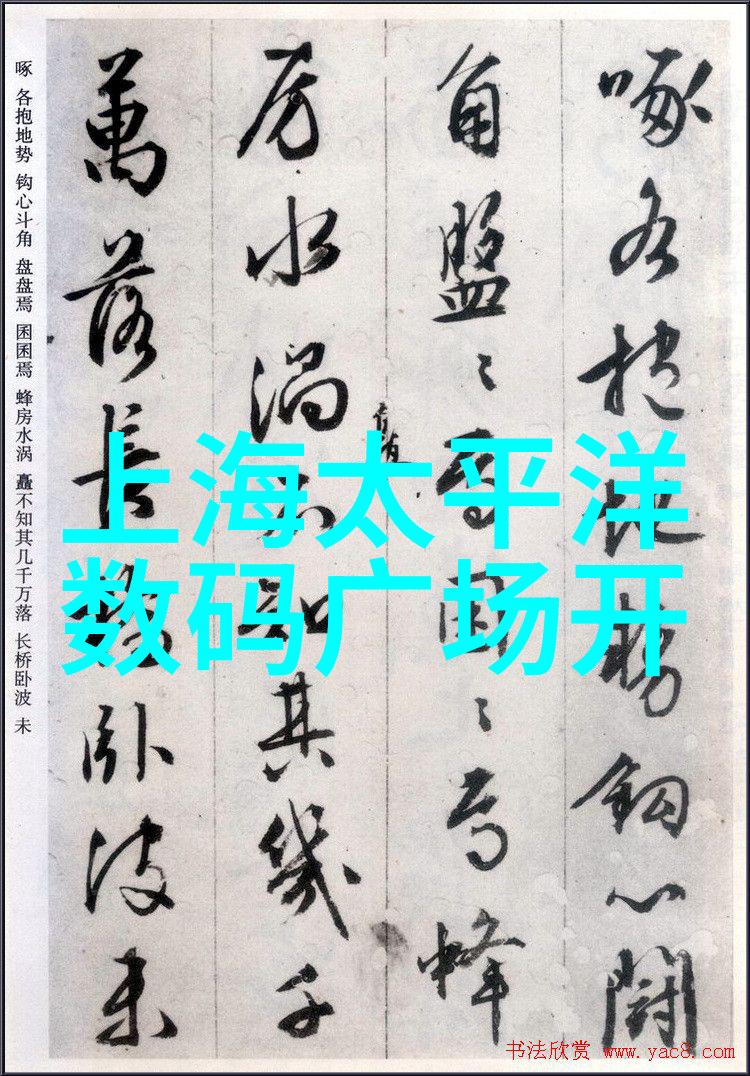 啄各抱地势钩心鬪
角盤〻焉囷〻焉蜂
房水渦不知其幾千
萬落長橋卧波未
啄 各抱地势 钩心斗角 盘盘焉 囷囷焉 蜂房水涡 矗不知其几千万落 长桥卧波 未
上海太平洋
数码广场开
书法欣赏 www.yac8.com